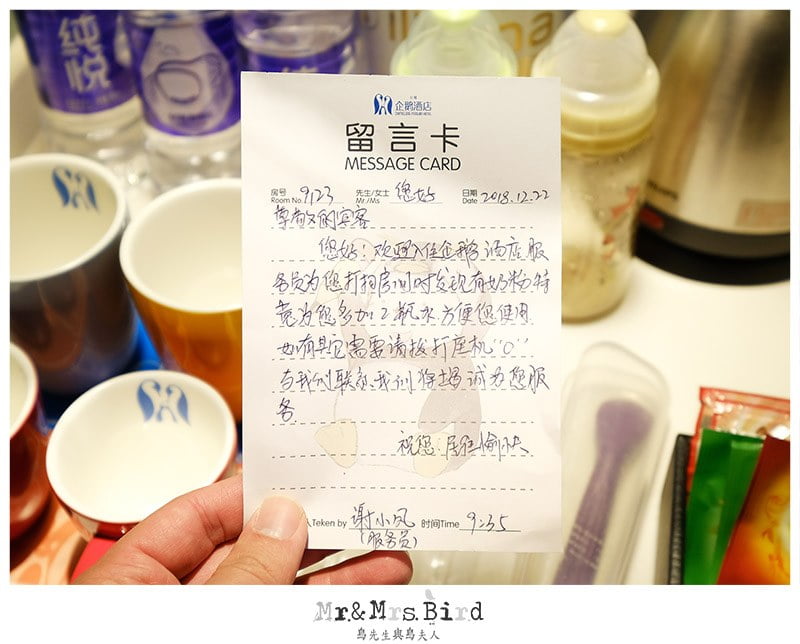 纯
悦
企鹅酒店
留言卡
MESSAGE CARD
房号 先生/女士 日期
Room No 9123 Mr./Ms 您好 Date 2018.12.22
尊敬的宾客
您好：欢迎入住企鹅酒店服
务员为您打扫房间时发现有奶粉特
意为您多加2瓶水方便您使用
如有其它需要请拨打座机"0"
与我们联系.我们将竭诚为您服
务
祝您：居住愉快
Teken by 谢小凤 时间Time 9:35
(服务员)
Mr.&Mrs.Bird
鳥先生與鳥夫人